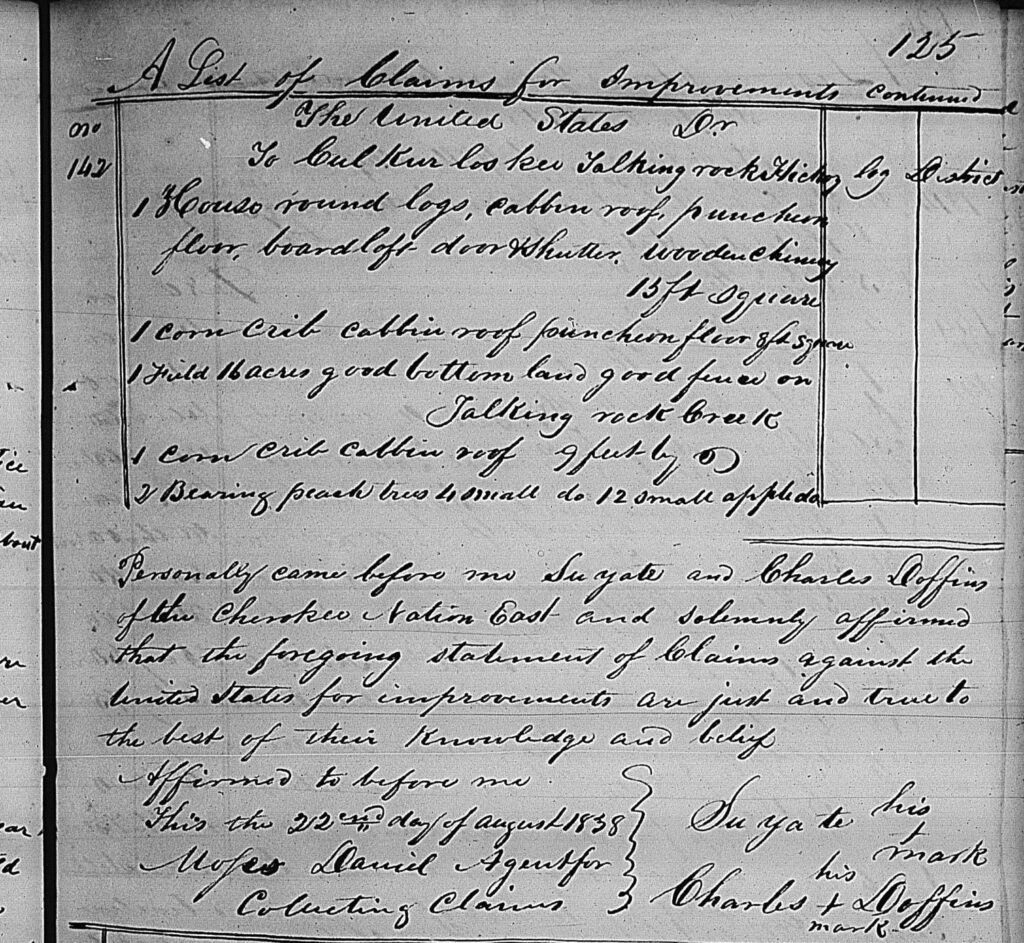 125
A List of Claims for Improvements continued
The United States Dr
no 142 To Cul Kur los kee Talking rock Hickory log District
1 House round logs, cabbin roof, puncheon
floor, board loft door & shutter. wooden chimny
15 ft square
1 corn crib cabbin roof puncheon floor 8 ft square
1 Field 16 acres good bottom land good fence on
Talking rock Creek
1 corn crib cabbin roof 9 feet by
2 Bearing peach trees 4 small do 12 small apple do
Personally came before me Su yate and Charles Doffins
of the Cherokee Nation East and solemnly affirmed
that the foregoing statement of Claims against the
United States for improvements are just and true to
the best of their Knowledge and belief
Affirmed to before me
This the 22nd day of august 1838
Moses Daniel Agent for
Collecting Claims
Su yate his + mark
Charles his + mark Doffins